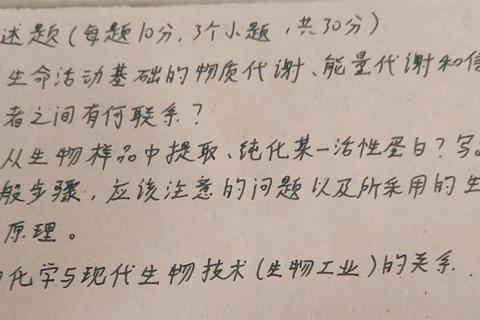 述题(每题10分,3个小题,共30分)
生命活动基础的物质代谢、能量代谢和信
者之间有何联系?
从生物样品中提取、纯化某一活性蛋白?写
般步骤,应该注意的问题以及所采用的生
原理。
化学与现代生物技术(生物工业)的关系.